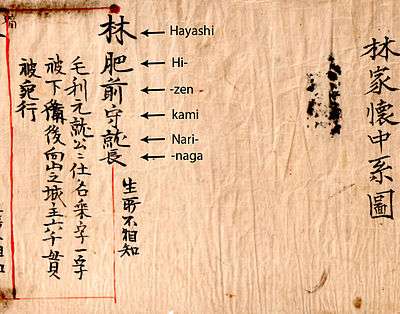 林家懷中系圖
Hayashi
Hi-
-zen
kami
Nari-
-naga
林肥前守就長
生所不相知
毛利元就公ニ仕名乗字一字
被下備後向山之城主六千貫
被宛行